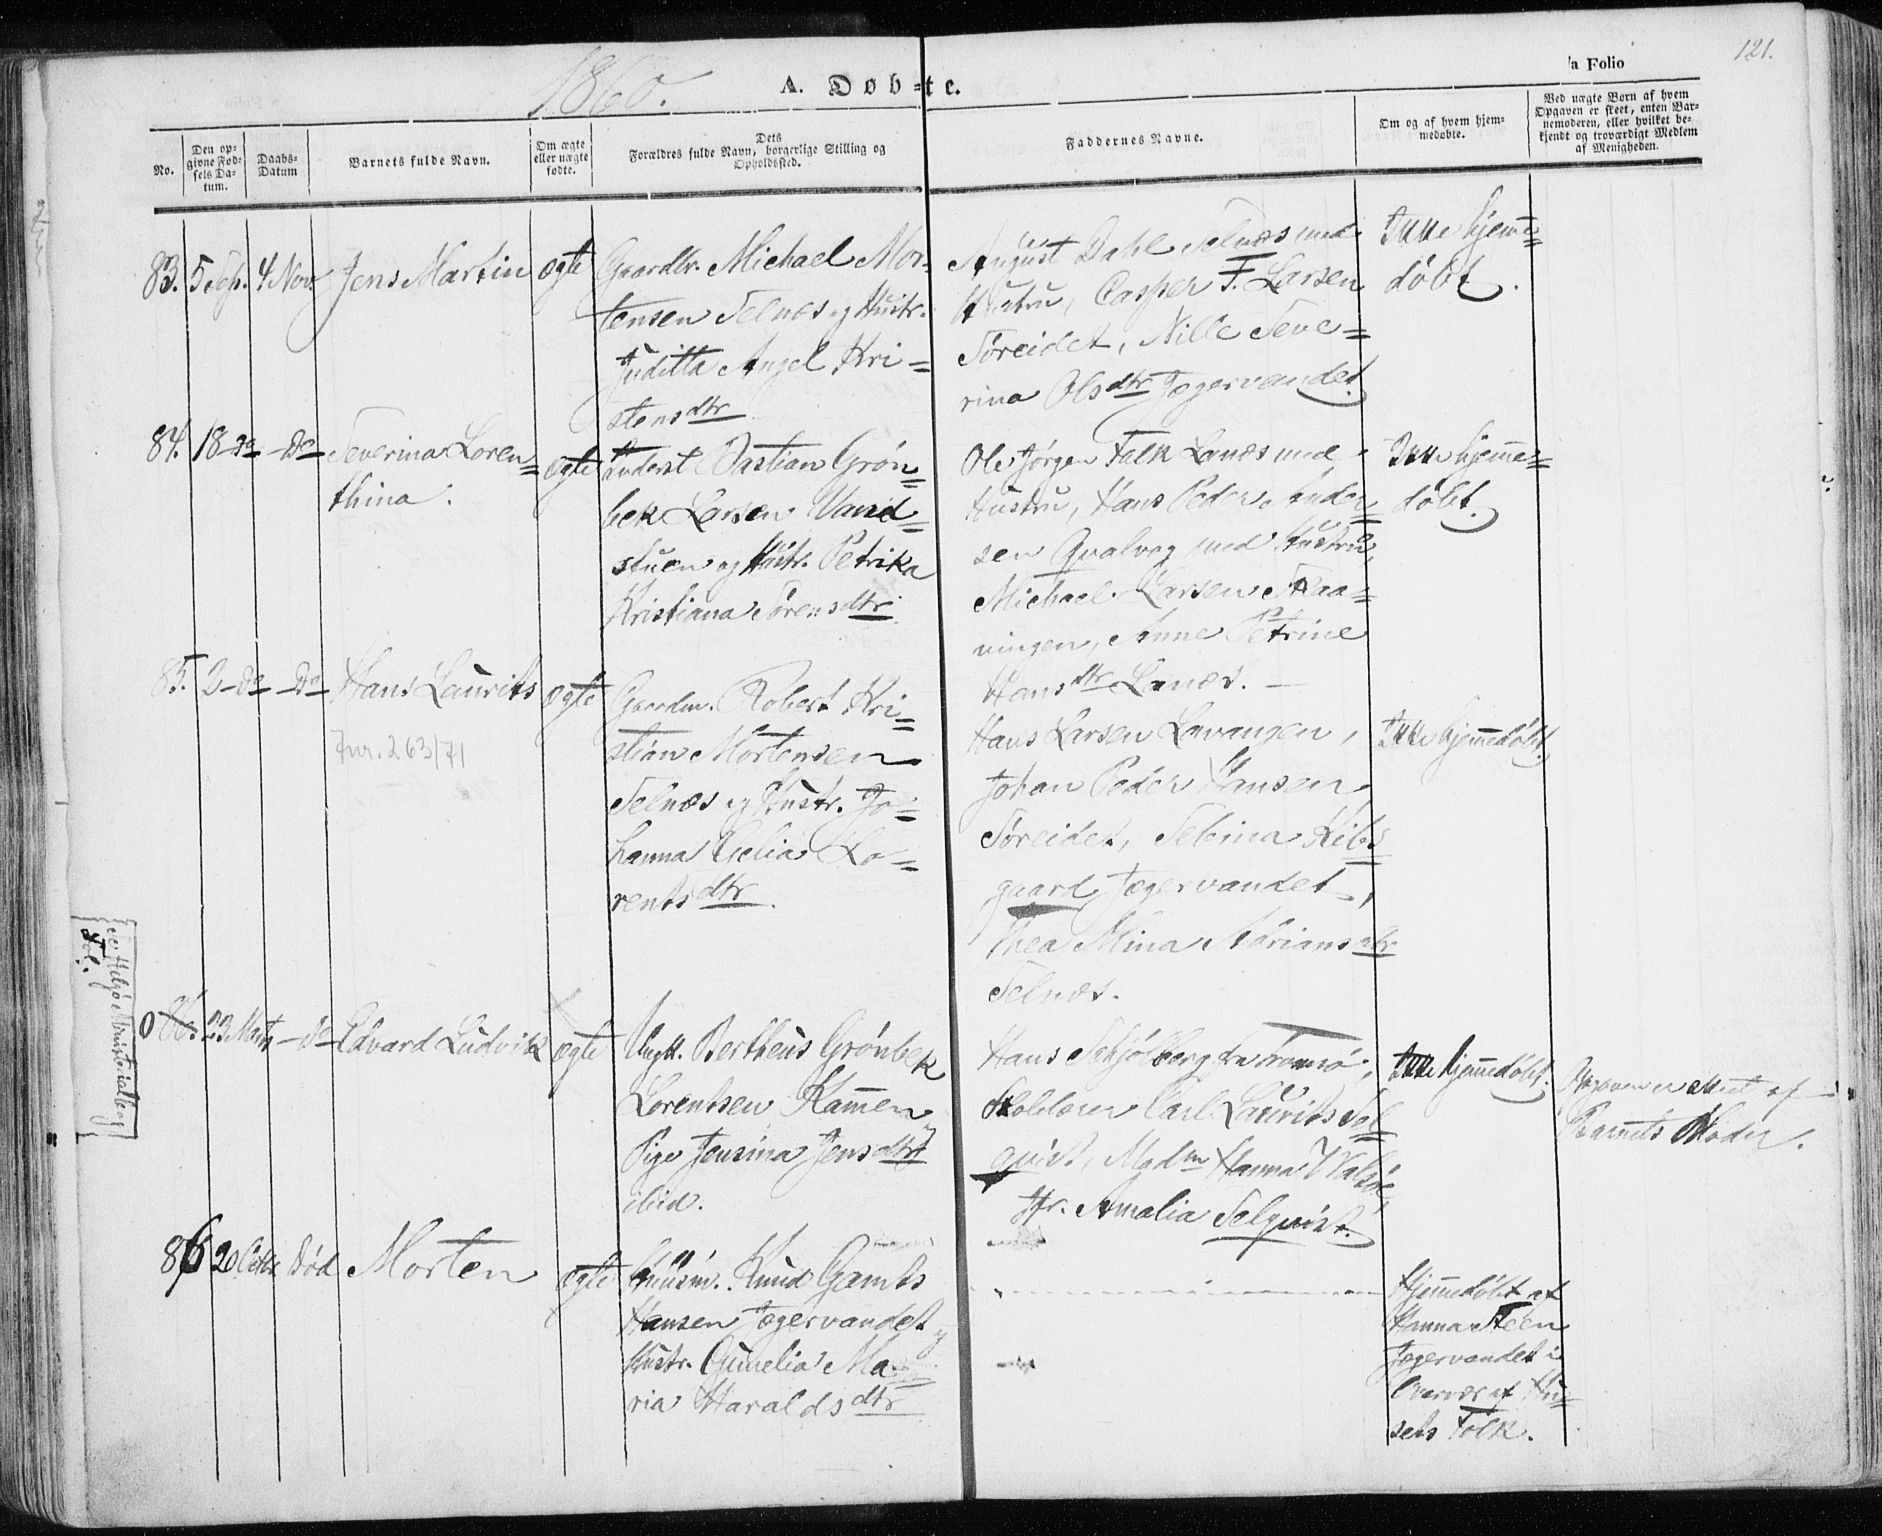 121.
1860.
A. Døb-te.
'a Folio
No.
Den op-
givne Fød-
sels Da-
tum.
Daabs-
Datum
Barnets fulde Navn.
Om ægte
eller uægte
fødte.
Dets
Forældres fulde Navn, borgerlige Stilling og
Opholdssted.
Faddernes Navne.
Om og af hvem hjem-
medøbte.
Ved uægte Børn af hvem
Opgaven er skeet, enten Bar-
nemoderen, eller hvilket be-
kjendt og troværdigt Medlem
af Menigheden.
83. 5 Sep. 4 Nov. Jens Martin ægte
Gaardbr. Michael Mor=
tensen Selnæs og Hustr.
Juditta Angel Kri=
stensdtr
August Dahl Selnæs med
Hustru, Casper F. Larsen
Søreidet, Nille Seve=
rina Olsdtr Jægervandet.
Ikke hjemme=
døbt.
84. 18 do - do Severina Loren=
thina. ægte
Inderst Bastian Grøn=
bek Larsen Vand=
stuen og Hustr. Petrika
Kristiana Sørensdtr.
Ole Jørgen Falk Lanæs med
Hustru, Hans Peder Ander=
sen Qvalvag med Hustru,
Michael Larsen Skaa=
ningen, Anne Petrine
Hansdtr Lanæs. —
Ikke hjemme=
døbt.
85. 2 - do - do Hans Laurits ægte
Jnr. 263/71
Gaardm. Robert Kri=
stian Mortensen
Selnæs og Hustr. Jo=
hanna Gelia Lo=
rentsdtr.
Hans Larsen Lavangen,
Johan Peder Hansen
Søreidet, Sebina Kibs=
gaard Jægervandet,
Thea Mina Adriansdtr
Selnæs.
Ikke hjemmedøbt.
Helgø Ministerialbog
0 86. 23 Marts - do Edvard Ludvik ægte
Ungk. Bertheus Grønbek
Lorentsen Kammen
Pige Jensina Jensdtr
ibid.
Hans Schjølberg fra Tromsø,
Skolelærer Carl Laurits Sel=
quist, Madm Hanna Walsøe,
Jfr. Amalia Selquist.
Ikke hjemmedøbt.
Opgaven er skeet af
Barnets Moder.
86 20 Octbr Død Morten ægte
Huusm. Knud Gamts
Hansen Jægervandet og
Hustr. Gunelia Ma=
ria Haraldsdtr
Hjemmedøbt af
Hanna Steen
Jægervandet i
Overvær af Hu=
sets Folk.